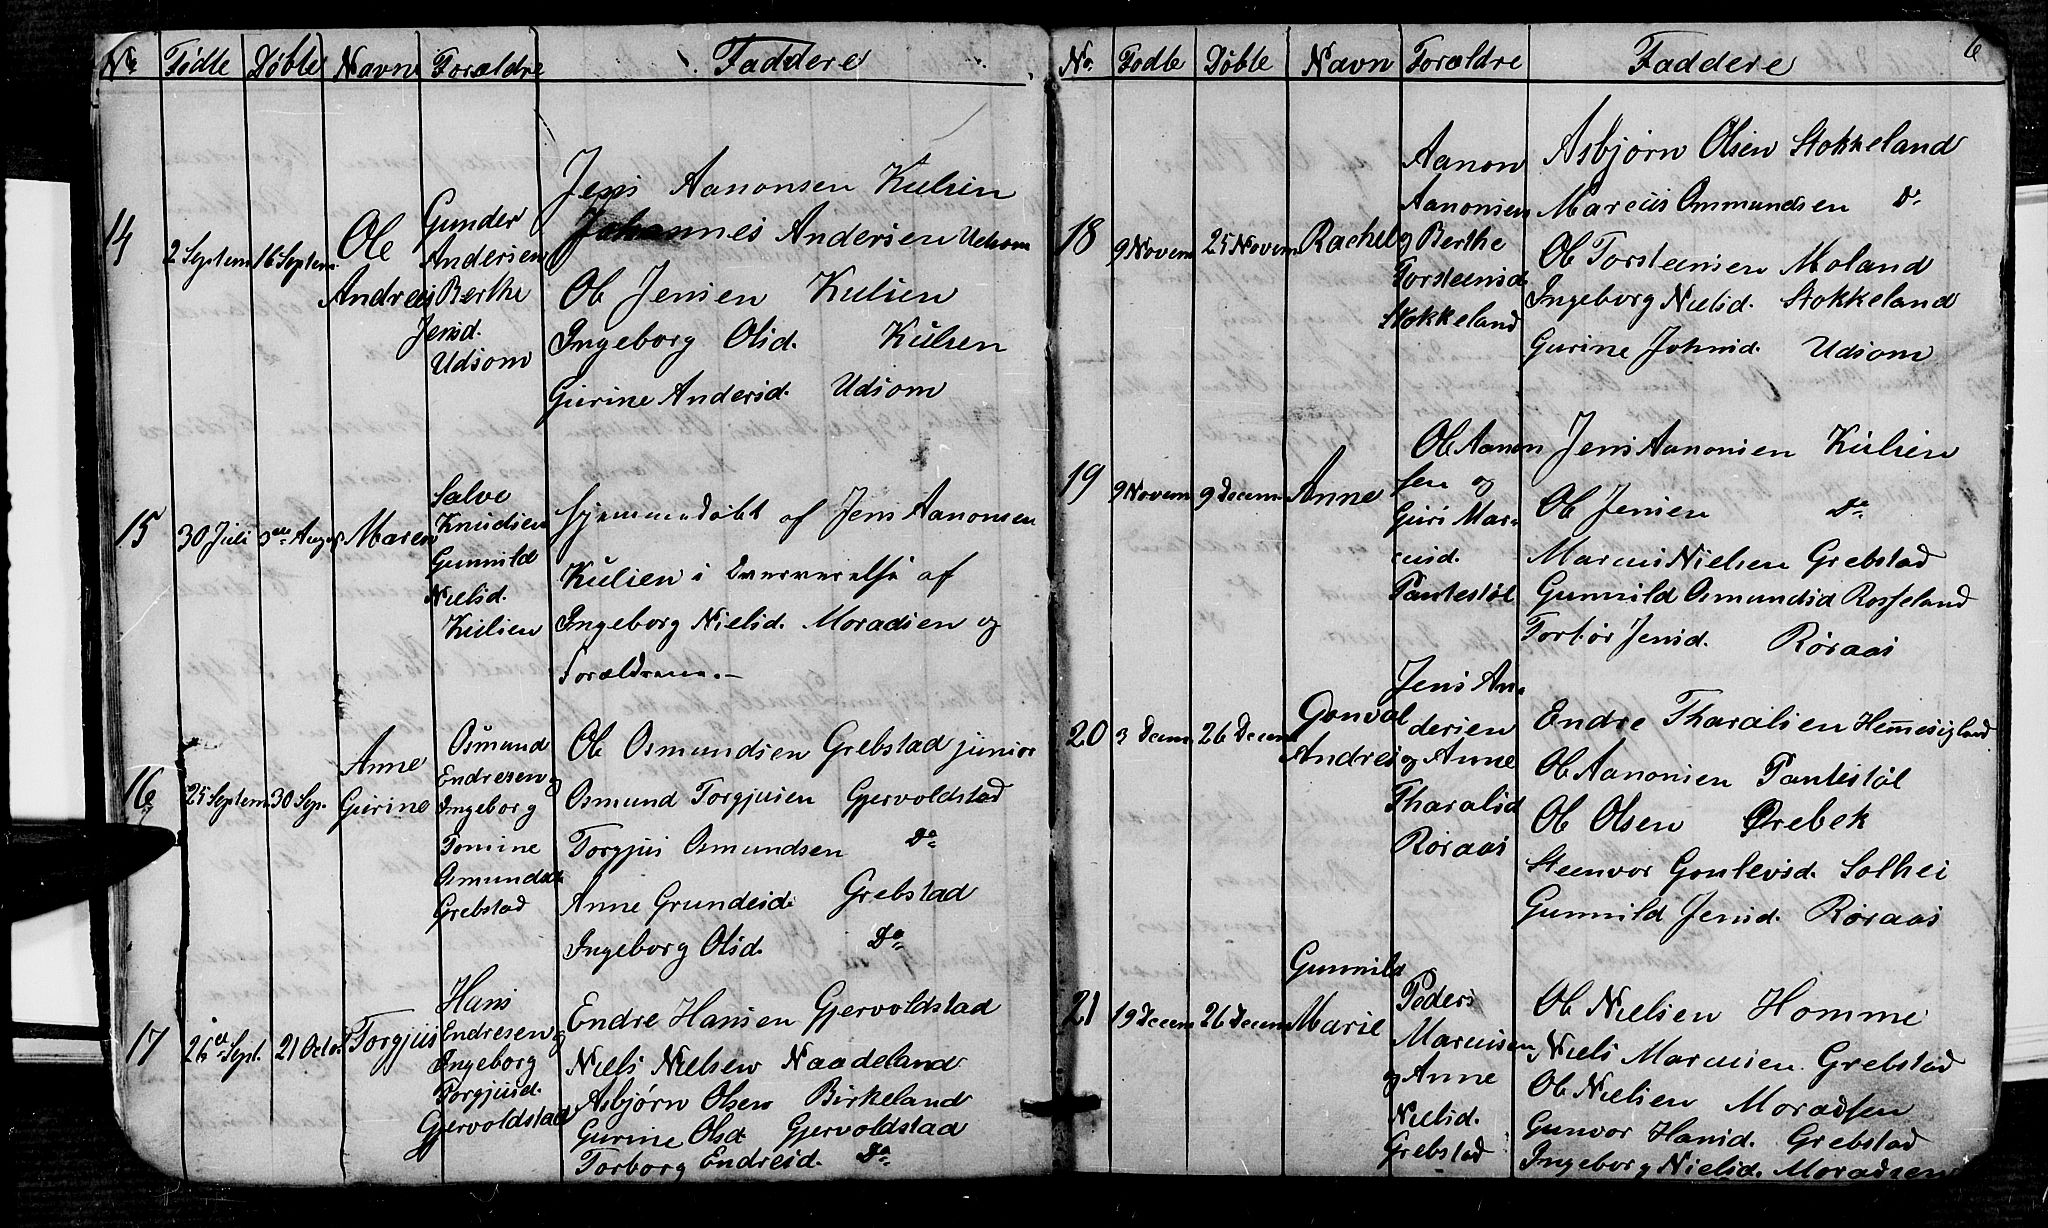 No Fødte Døbte Navn Forældre Faddere
14 2 Septem 16 Septem Ole Andreas
Gunder
Andersen
Berthe
Jensd.
Udsom
Jens Aanonsen Kulien
Johannes Andersen Udsom
Ole Jensen Kulien
Ingeborg Olsd. Kulien
Gurine Andersd. Udsom
15 30 Juli Augst Maren
Salve
Knudsen
Gunnild
Nielsd.
Kulien
hjemmedøbt af Jens Aanonsen
Kulien i Overværelse af
Ingeborg Nielsd. Moradsen og
Forældrene.-
16 25 Septem 30 Sep. Anne Gurine
Osmund
Endresen og
Ingeborg
Tomine
Osmundsd.
Grebstad
Ole Osmundsen Grebstad junior
Osmund Torgjusen Gjervoldstad
Torgjus Osmundsen Do
Anne Grundesd. Grebstad
Ingeborg Olsd. Do
17 26de Sept. 21 Octo. Torgjus
Hans
Endresen og
Ingeborg
Torgjusd.
Gjervoldstad
Endre Hansen Gjervoldstad
Niels Nielsen Naadeland
Asbjørn Olsen Birkeland
Gurine Olsd. Gjervoldstad
Torborg Endresd. Do
6
No. Fødte Døbte Navn Forældre Faddere
18 9 Novem 25 Novem Rachel
Aanon
Aanonsen
og Berthe
Torsteensd.
Stokkeland
Asbjørn Olsen Stokkeland
Marcus Ommundsen Do
Ole Torsteensen Moland
Ingeborg Nielsd. Stokkeland
Gurine Johnsd. Udsom
19 9 Novem 9 Decem Anne
Ole Aanon
sen og
Guri Mar-
cusd.
Pantestøl
Jens Aanonsen Kulien
Ole Jensen Do
Marcus Nielsen Grebstad
Gunnild Osmundsd Rosseland
Torbør Jensd. Røraas
20 3 Decem 26 Decem Gonval Andreas
Jens An-
dersen
og Anne
Tharalsd
Røraas
Endre Tharalsen Hennesigland
Ole Aanonsen Pantestøl
Ole Olsen Ørebek
Steenvor Gonlevsd. Solhei
Gunnild Jensd. Røraas
21 19 Decem 26 Decem Gunnild Marie
Peders
Marcusen
og Anne
Nielsd.
Grebstad
Ole Nielsen Homme
Niels Marcusen Grebstad
Ole Nielsen Moradsen
Gunvor Hansd. Grebstad
Ingeborg Nielsd. Moradsen